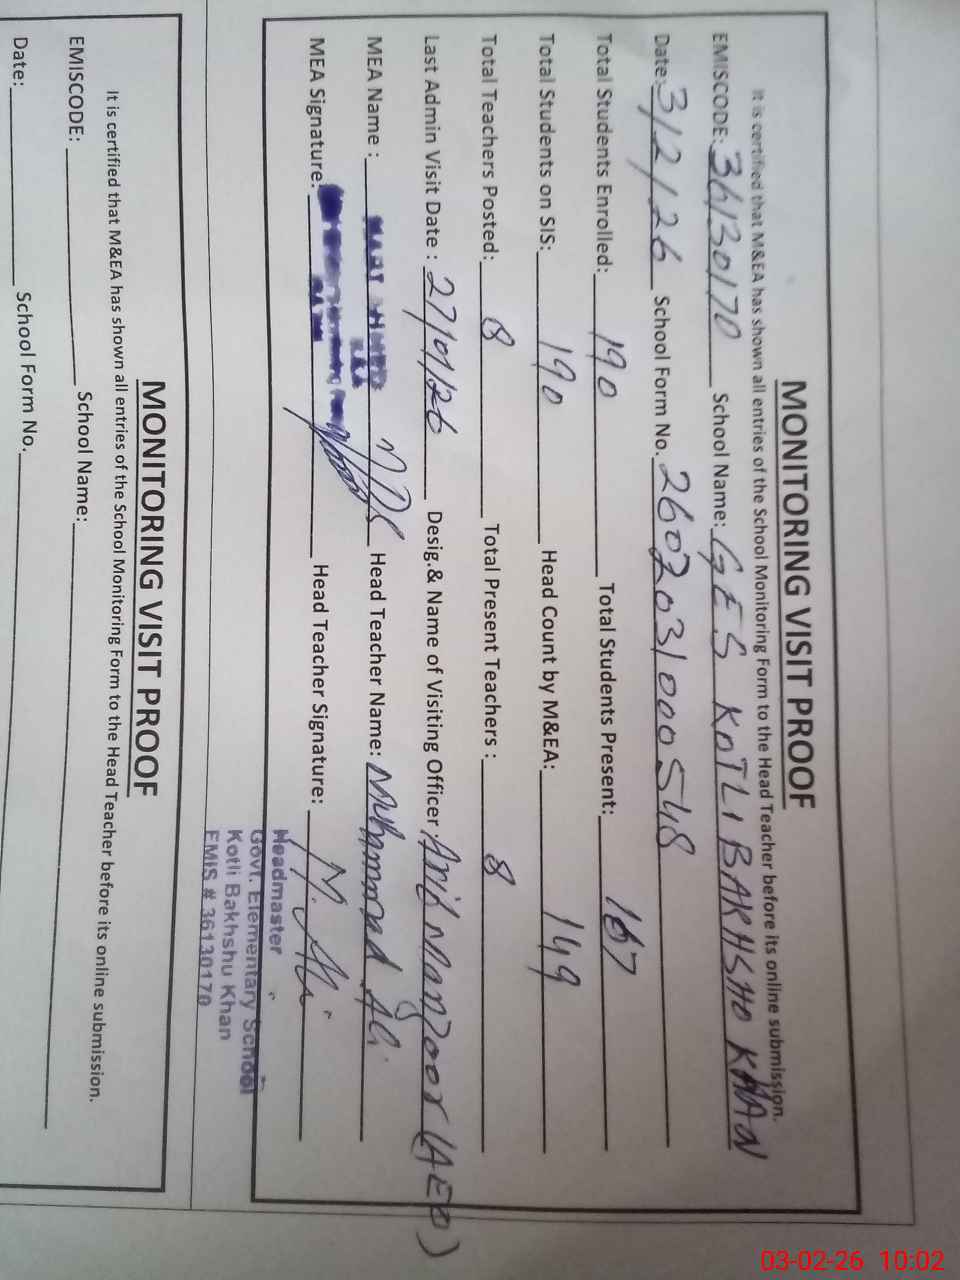 MONITORING VISIT PROOF
It is certified that M&EA has shown all entries of the School Monitoring Form to the Head Teacher before its online submission.
EMISCODE: 36130170 School Name: GES KOTLI BAKHSHO KHAN
Date: 3/2/26 School Form No. 2602031000548
Total Students Enrolled: 190 Total Students Present: 167
Total Students on SIS: 190 Head Count by M&EA: 149
Total Teachers Posted: 8 Total Present Teachers : 8
Last Admin Visit Date : 27/01/26 Desig.& Name of Visiting Officer: Manzoor (AEO)
MEA Name : Head Teacher Name: Muhammad Ali
MEA Signature: Head Teacher Signature: M. Ali
Headmaster
Govt. Elementary School
Kotli Bakhshu Khan
EMIS # 36130170
MONITORING VISIT PROOF
It is certified that M&EA has shown all entries of the School Monitoring Form to the Head Teacher before its online submission.
EMISCODE: School Name:
Date: School Form No.
03-02-26 10:02